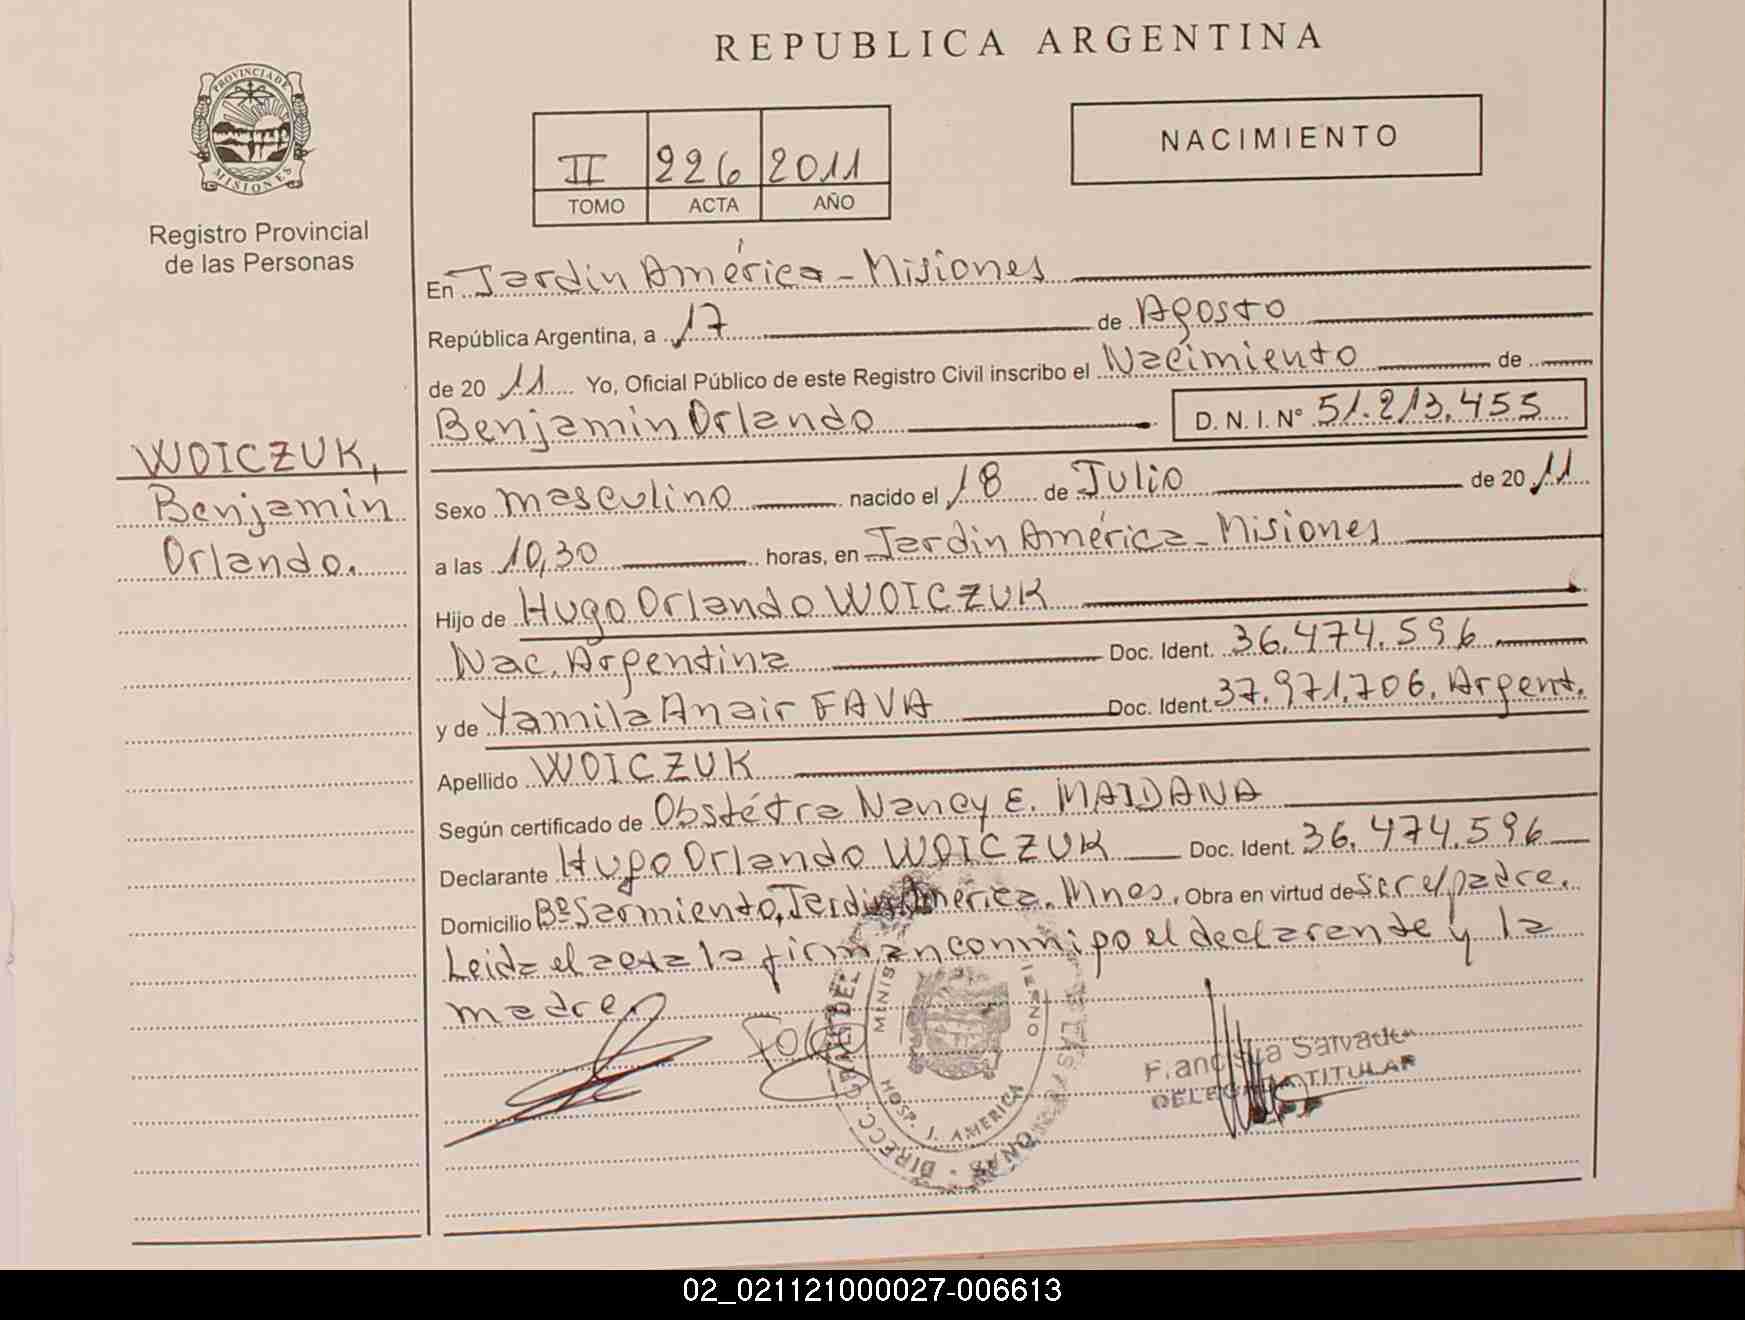 REPUBLICA ARGENTINA
PROVINCIA DE
MISIONES
Registro Provincial
de las Personas
II 226 2011
TOMO ACTA AÑO
NACIMIENTO
En Jardin América - Misiones
República Argentina, a 17 de Agosto
de 20 11 Yo, Oficial Público de este Registro Civil inscribo el Nacimiento de
Benjamin Orlando D. N. I. Nº 51.213.455
WOICZUK,
Benjamin
Orlando.
Sexo masculino nacido el 18 de Julio de 20 11
a las 10,30 horas, en Jardin América - Misiones
Hijo de Hugo Orlando WOICZUK
Nac. Argentina Doc. Ident. 36.474.596
y de Yamila Anair FAVA Doc. Ident. 37.971.706. Argent.
Apellido WOICZUK
Según certificado de Obstétra Nancy E. MAIDANA
Declarante Hugo Orlando WOICZUK Doc. Ident. 36.474.596
Domicilio Bº Sarmiento, Jardin América. Mnes. Obra en virtud de ser el padre.
Leida el acta la firman conmigo el declarante y la
madre
DIRECC. GRAL DEL
MINIS
HOSP. J. AMERICA
Francisca Salvador
DELEGADA TITULAR
02_021121000027-006613